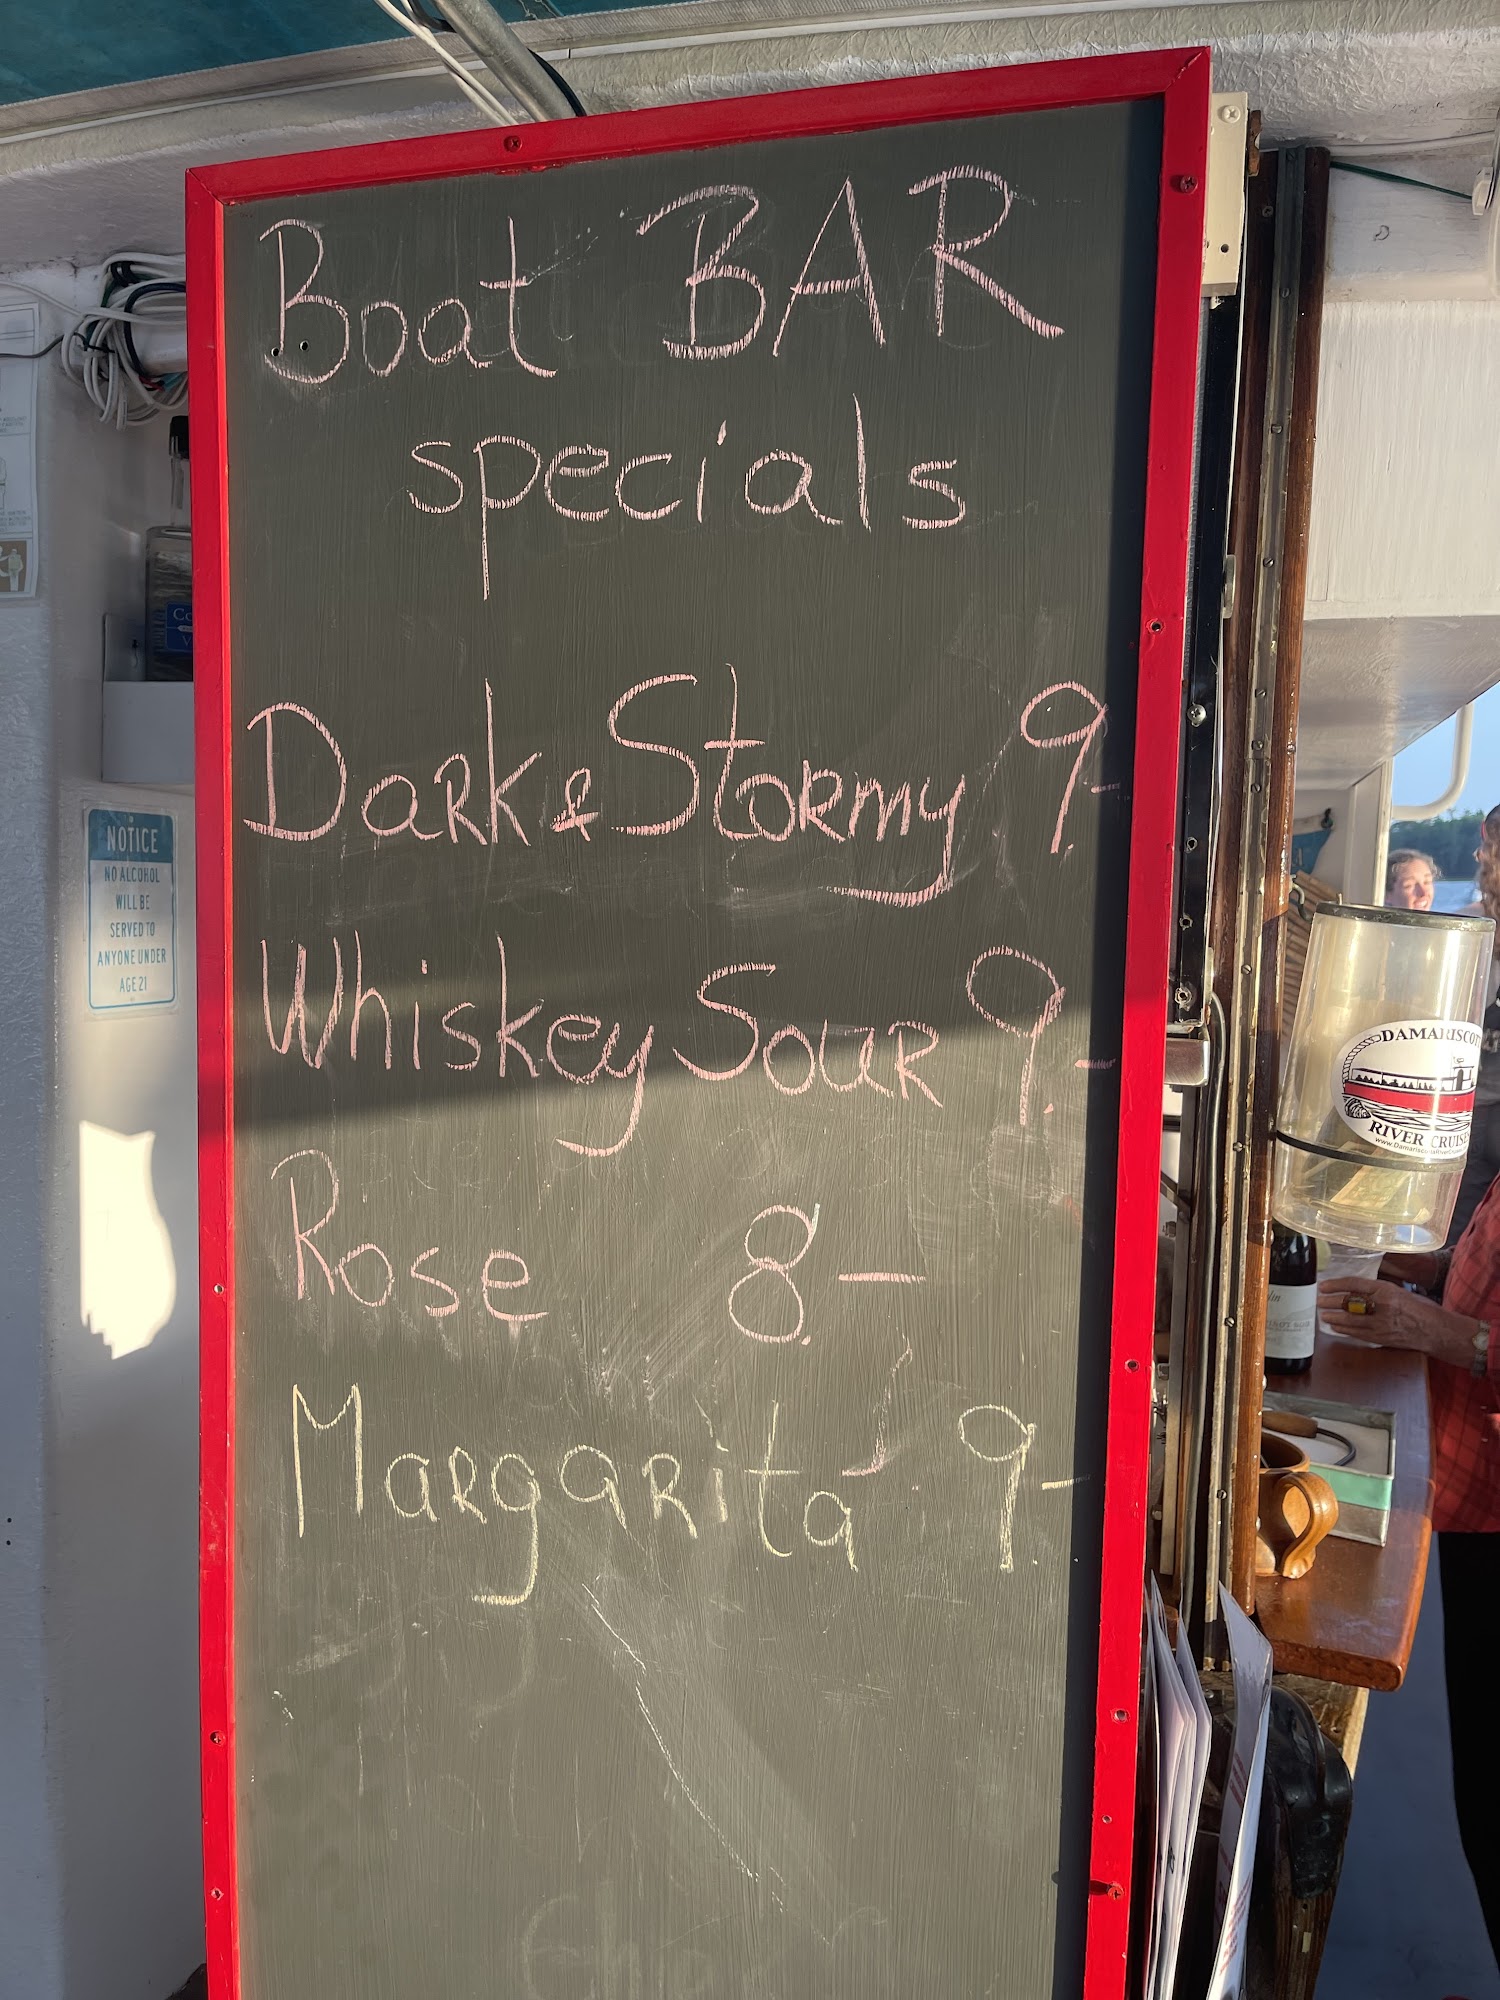 Boat BAR
specials
Dark & Stormy 9.-
Whiskey Sour 9.-
Rose 8.-
Margarita 9.-
NOTICE
NO ALCOHOL
WILL BE
SERVED TO
ANYONE UNDER
AGE 21
DAMARISCOT
RIVER CRUISE